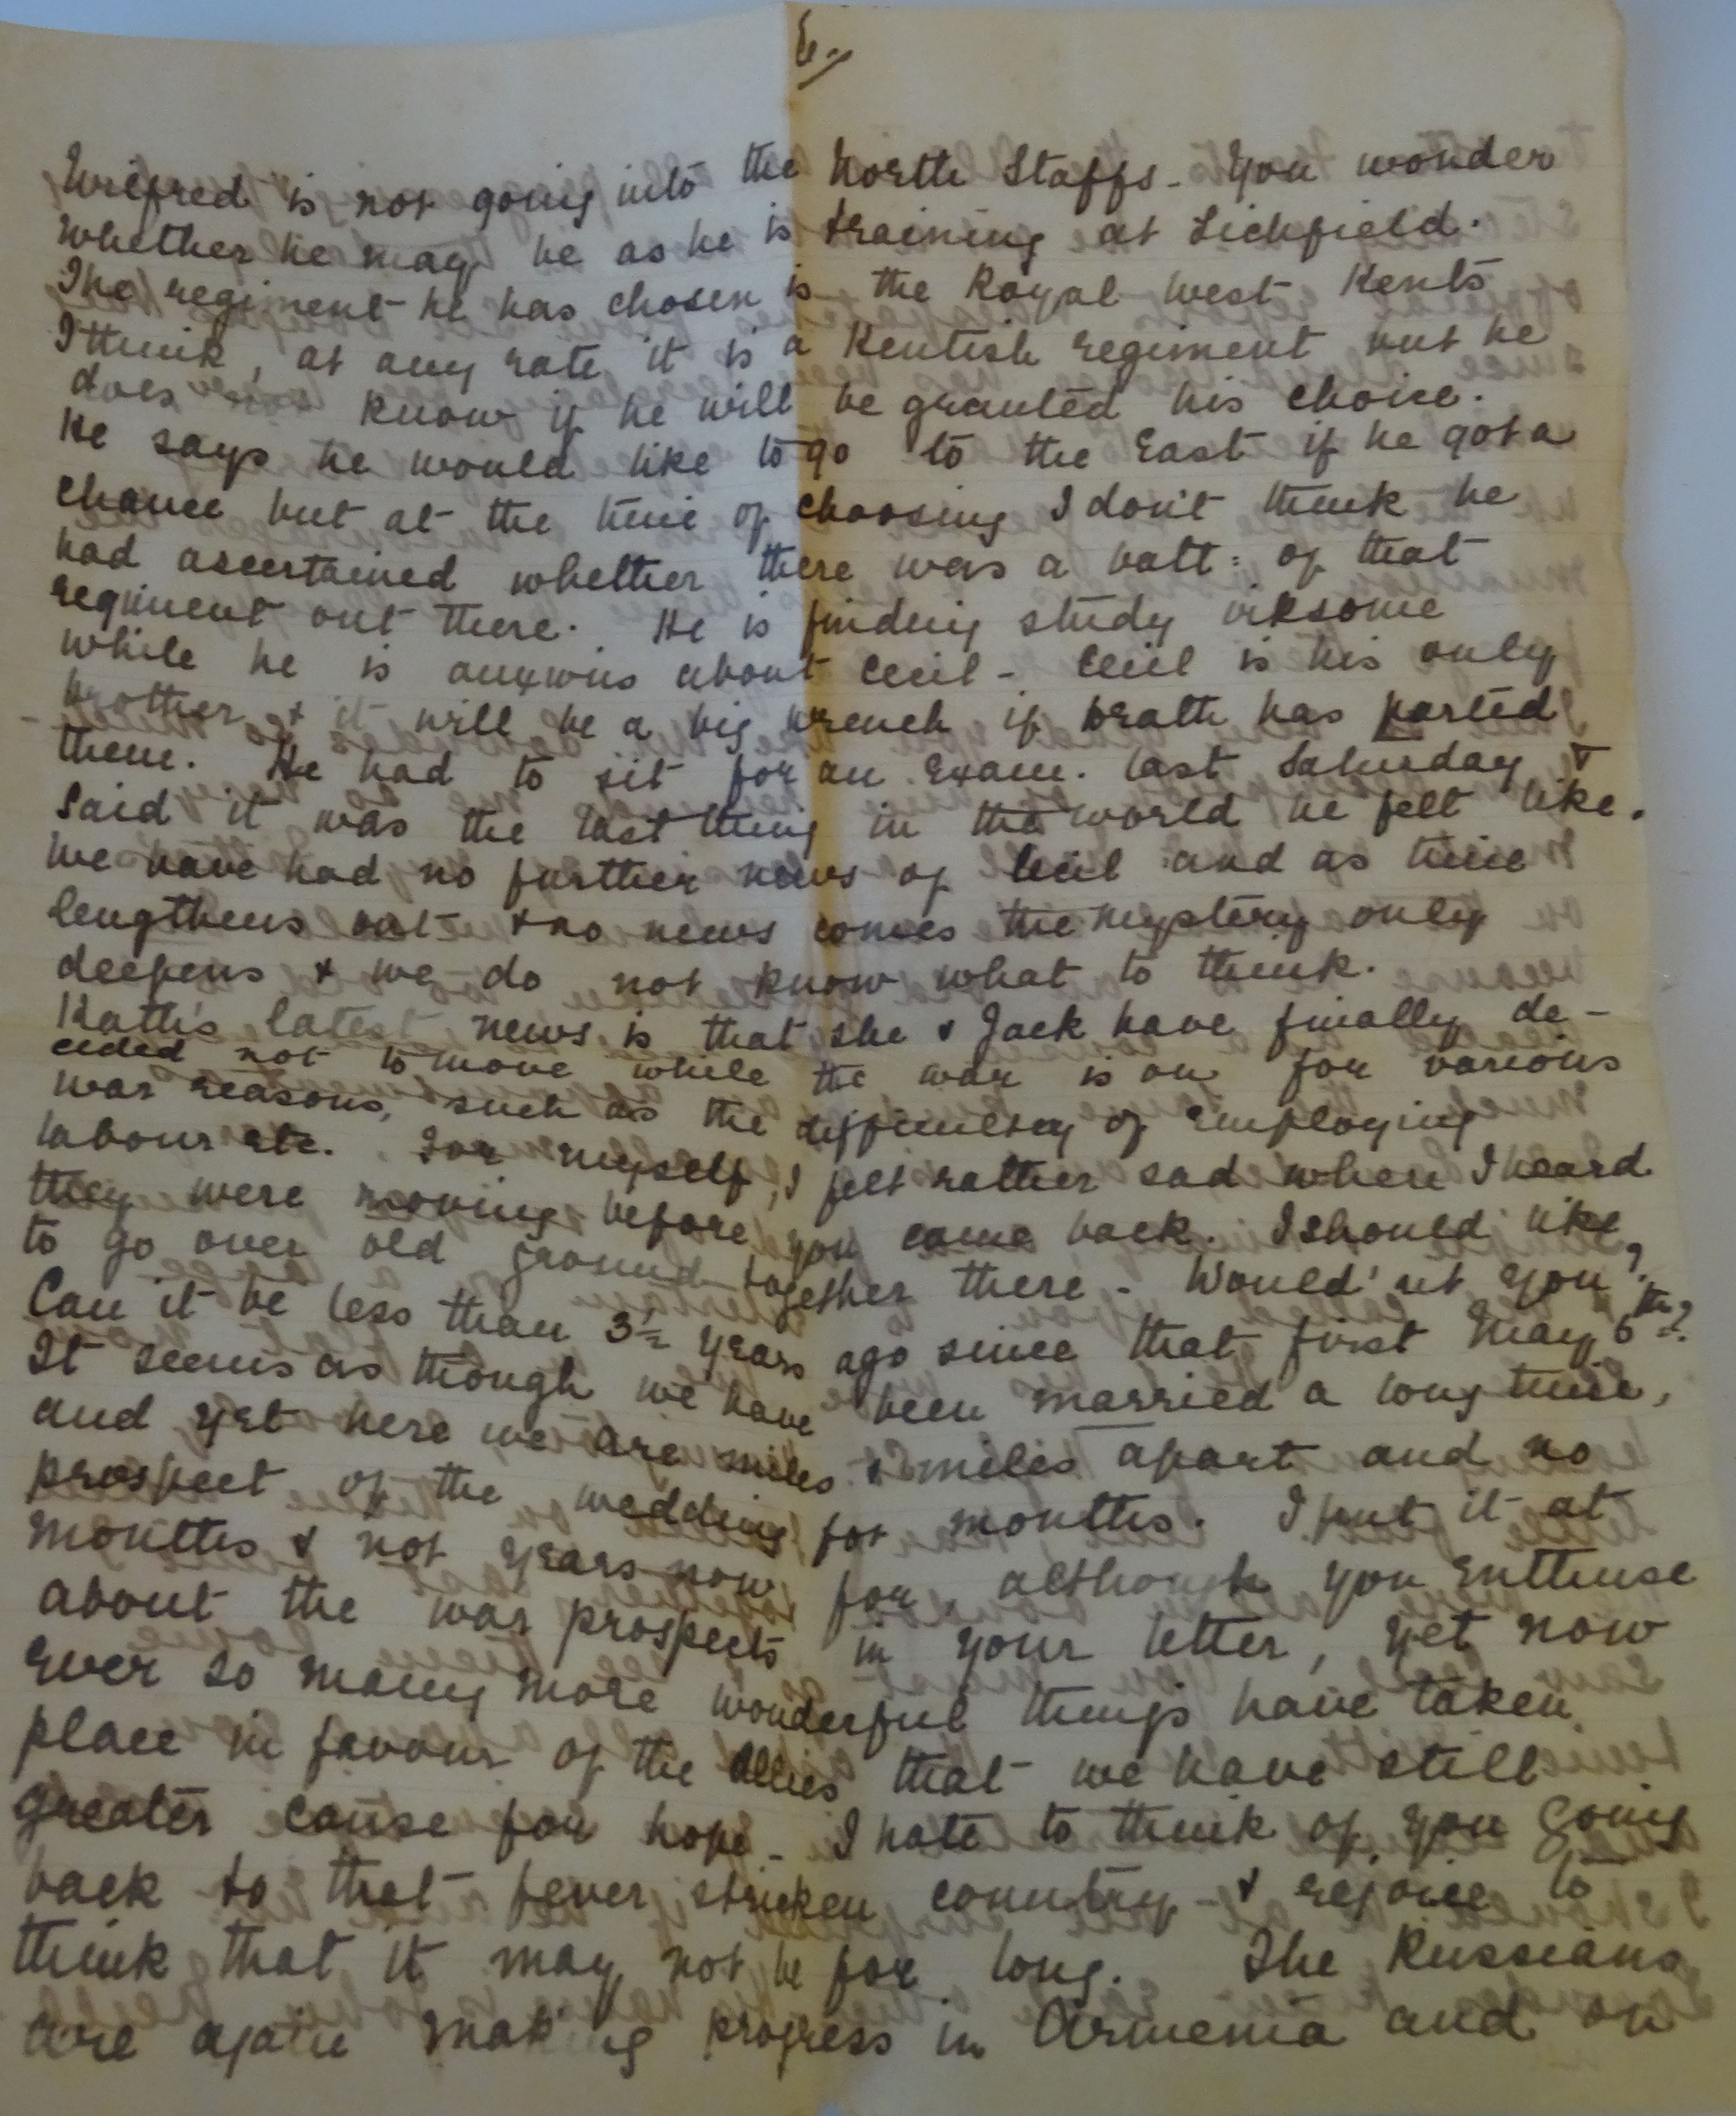 6.
Wilfred is not going into the North Staffs. You wonder
whether he may be as he is training at Lichfield.
The regiment he has chosen is the Royal West Kents
I think, at any rate it is a Kentish regiment but he
does not know if he will be granted his choice.
He says he would like to go to the East if he got a
chance but at the time of choosing I don't think he
had ascertained whether there was a batt: of that
regiment out there. He is finding study irksome
while he is anxious about Cecil - Cecil is his only
brother & it will be a big wrench if death has parted
them. He had to sit for an Exam. last Saturday &
said it was the last thing in the world he felt like.
We have had no further news of Cecil and as time
lengthens out & no news comes the mystery only
deepens & we do not know what to think.
Kath's latest news is that she & Jack have finally de-
cided not to move while the war is on for various
war reasons, such as the difficulty of employing
labour etc. For myself, I felt rather sad when I heard
they were moving before you came back. I should like
to go over old ground together there - Would'nt you?
Can it be less than 3½ years ago since that first May 6th?
It seems as though we have been married a long time,
and yet here we are miles & miles apart and no
prospect of the wedding for months. I put it at
months & not years now for, although you enthuse
about the war prospects in your letter, yet now
ever so many more wonderful things have taken
place in favour of the Allies that we have still
greater cause for hope. I hate to think of you going
back to that fever stricken country - & rejoice to
think that it may not be for long. The Russians
are again making progress in Armenia and on